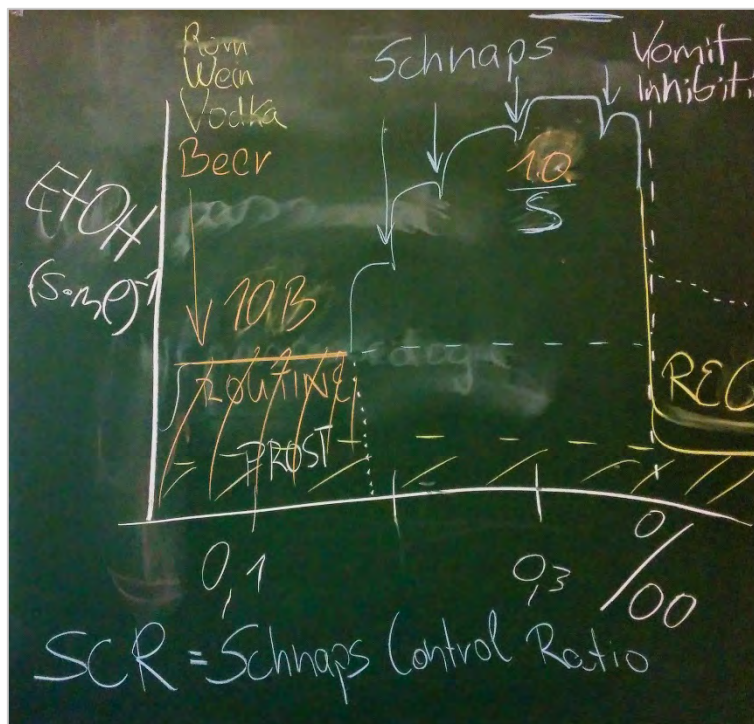 Rom
Wein
Vodka
Beer
Schnaps
Vomit
Inhibiti
EtOH
10B
ROUTINE
PROST
REC
0,1
0,3
0/00
SCR = Schnaps Control Ratio